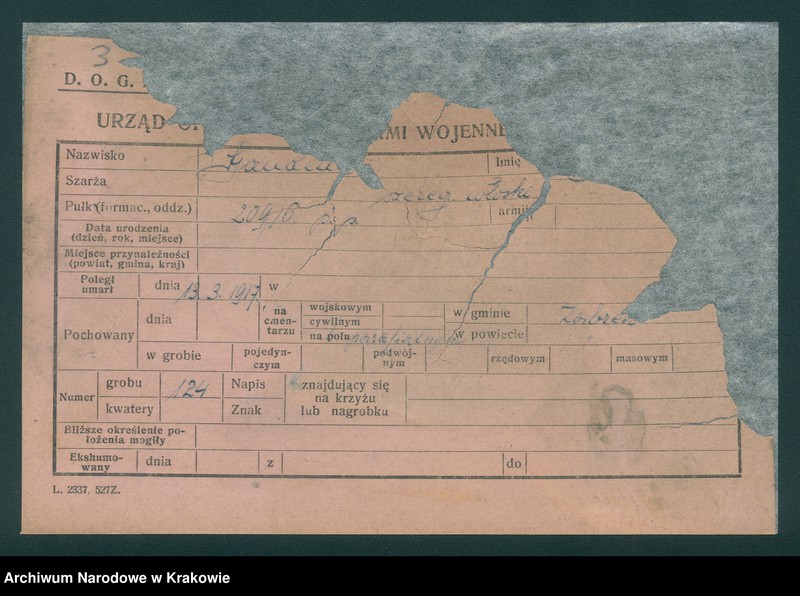 3
D. O. G.
URZĄD AMI WOJENNE
Nazwisko Imię
Szarża szereg.
Pułk (formac., oddz.) p. p. armji
Data urodzenia
(dzień, rok, miejsce)
Miejsce przynależności
(powiat, gmina, kraj)
Poległ
umarł dnia 13. 3. 1917 w
Pochowany dnia na cmen-
tarzu wojskowym
cywilnym
na polu w gminie
w powiecie
w grobie pojedyn-
czym podwój-
nym rzędowym masowym
Numer grobu 124 Napis znajdujący się
na krzyżu
lub nagrobku
kwatery Znak
Bliższe określenie po-
łożenia mogiły
Ekshumo-
wany dnia z do
L. 2337. 527Z.
Archiwum Narodowe w Krakowie